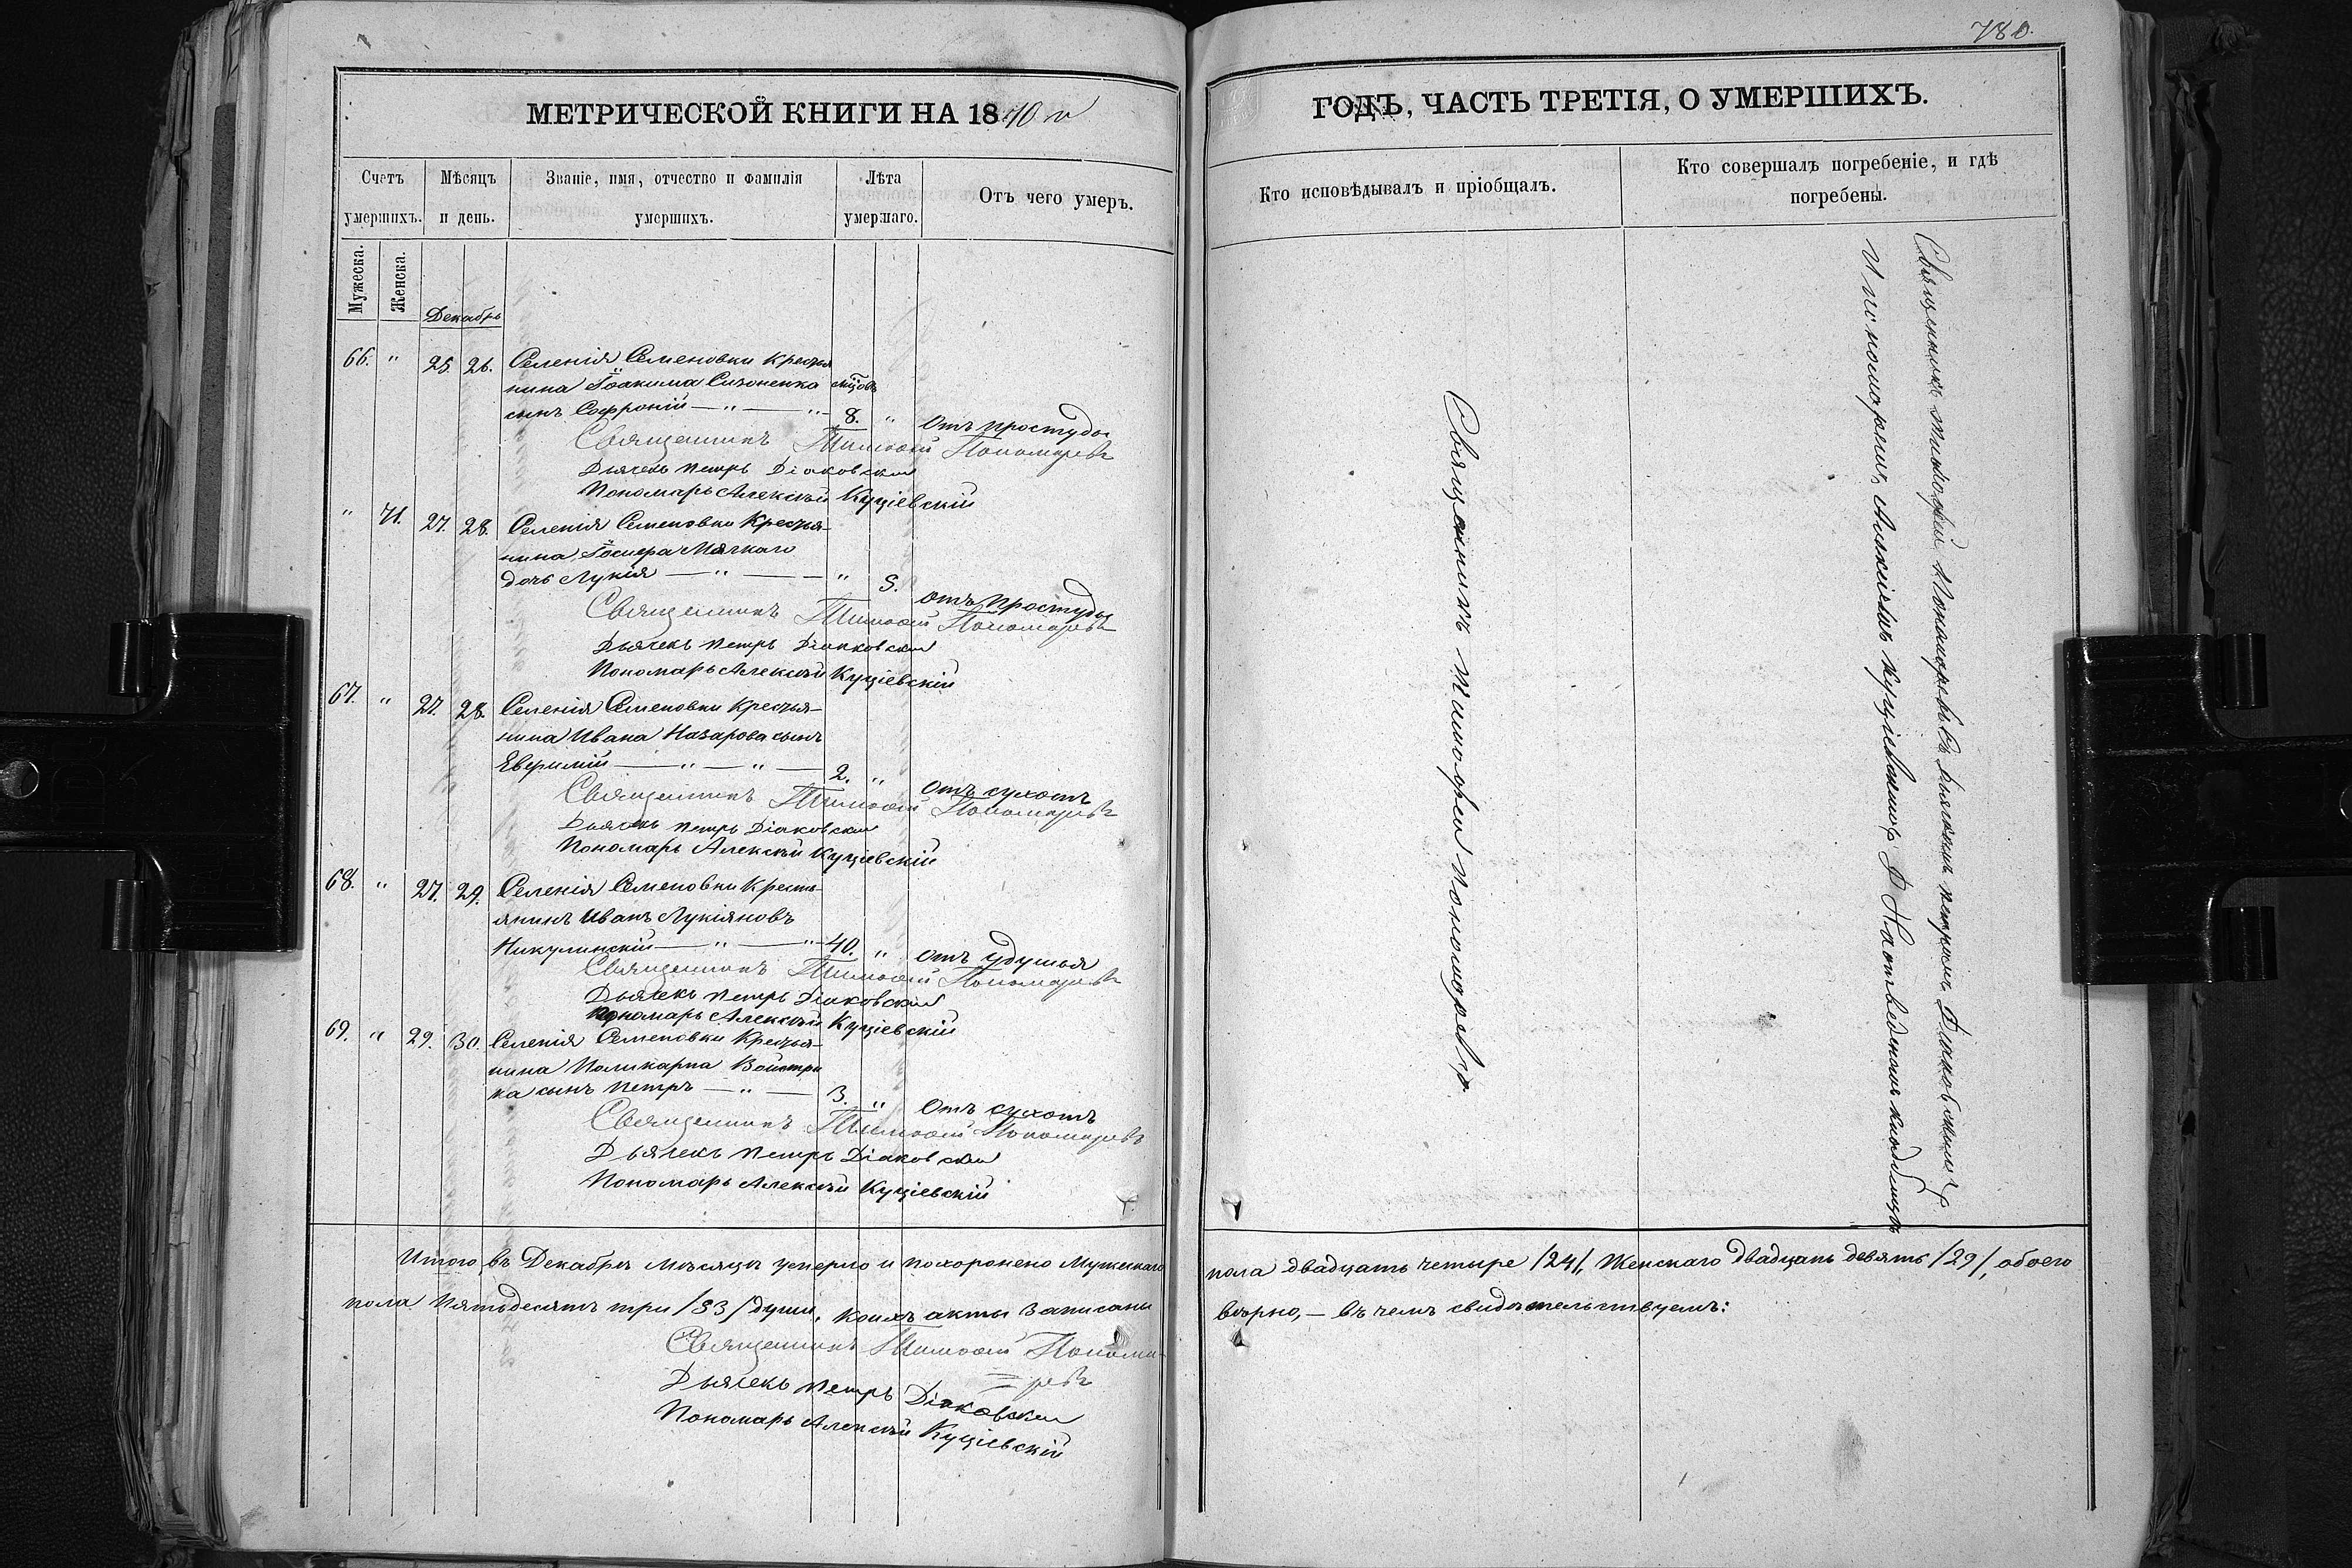 780.
МЕТРИЧЕСКОЙ КНИГИ НА 1870 й
Счетъ умершихъ.
Мѣсяцъ и день.
Званіе, имя, отчество и фамилія умершихъ.
Лѣта умершаго.
Отъ чего умеръ.
Мужеска.
Женска.
Декабрь
66. " 25. 26. Селенія Семеновки Крестья
нина Іоакима Сизоненка мцовъ
сынъ Софроній — " — " — 8. " Отъ простуды
Священникъ Тимоѳей Пономаревъ
Дьячекъ Петръ Діаковскій
Пономарь Алексѣй Куціевскій
" 71. 27. 28. Селенія Семеновки Крестья-
нина Іосифа Мягкаго
дочь Лукія — " — — " 5. отъ простуды
Священникъ Тимоѳей Пономаревъ
Дьячекъ Петръ Діаковскій
Пономарь Алексѣй Куціевскій
67. " 27. 28. Селенія Семеновки Крестья-
нина Ивана Назарова сынъ
Евфимій — " — " — 2. " Отъ сухотъ
Священникъ Тимоѳей Пономаревъ
Дьячекъ Петръ Діаковскій
Пономарь Алексѣй Куціевскій
68. " 27. 29. Селенія Семеновки Кресть-
янинъ Иванъ Лукіяновъ
Никулинскій — " — " — 40. " Отъ удушья
Священникъ Тимоѳей Пономаревъ
Дьячекъ Петръ Діаковскій
Пономарь Алексѣй Куціевскій
69. " 29. 30. Селенія Семеновки Крестья-
нина Поликарпа Войстри
ка сынъ Петръ — " — 3. " Отъ сухотъ
Священникъ Тимоѳей Пономаревъ
Дьячекъ Петръ Діаковскій
Пономарь Алексѣй Куціевскій
Итого въ Декабрѣ мѣсяцѣ умерло и похоронено Мужескаго
пола Пятьдесятъ три /53/ души, коихъ акты записаны
Священникъ Тимоѳей Понома-
=ревъ
Дьячекъ Петръ Діаковскій
Пономарь Алексѣй Куціевскій
ГОДЪ, ЧАСТЬ ТРЕТІЯ, О УМЕРШИХЪ.
Кто исповѣдывалъ и пріобщалъ.
Кто совершалъ погребеніе, и гдѣ
погребены.
Священникъ Тимофей Пономаревъ
Священникъ Тимофей Пономаревъ Съ дьячкомъ Петромъ Діаковскимъ
И пономаремъ Алексіемъ Куціевскимъ На отведенномъ кладбищѣ
пола двадцать четыре /24/, Женскаго двадцать девять /29/, обоего
вѣрно, — въ чемъ свидѣтельствуемъ: